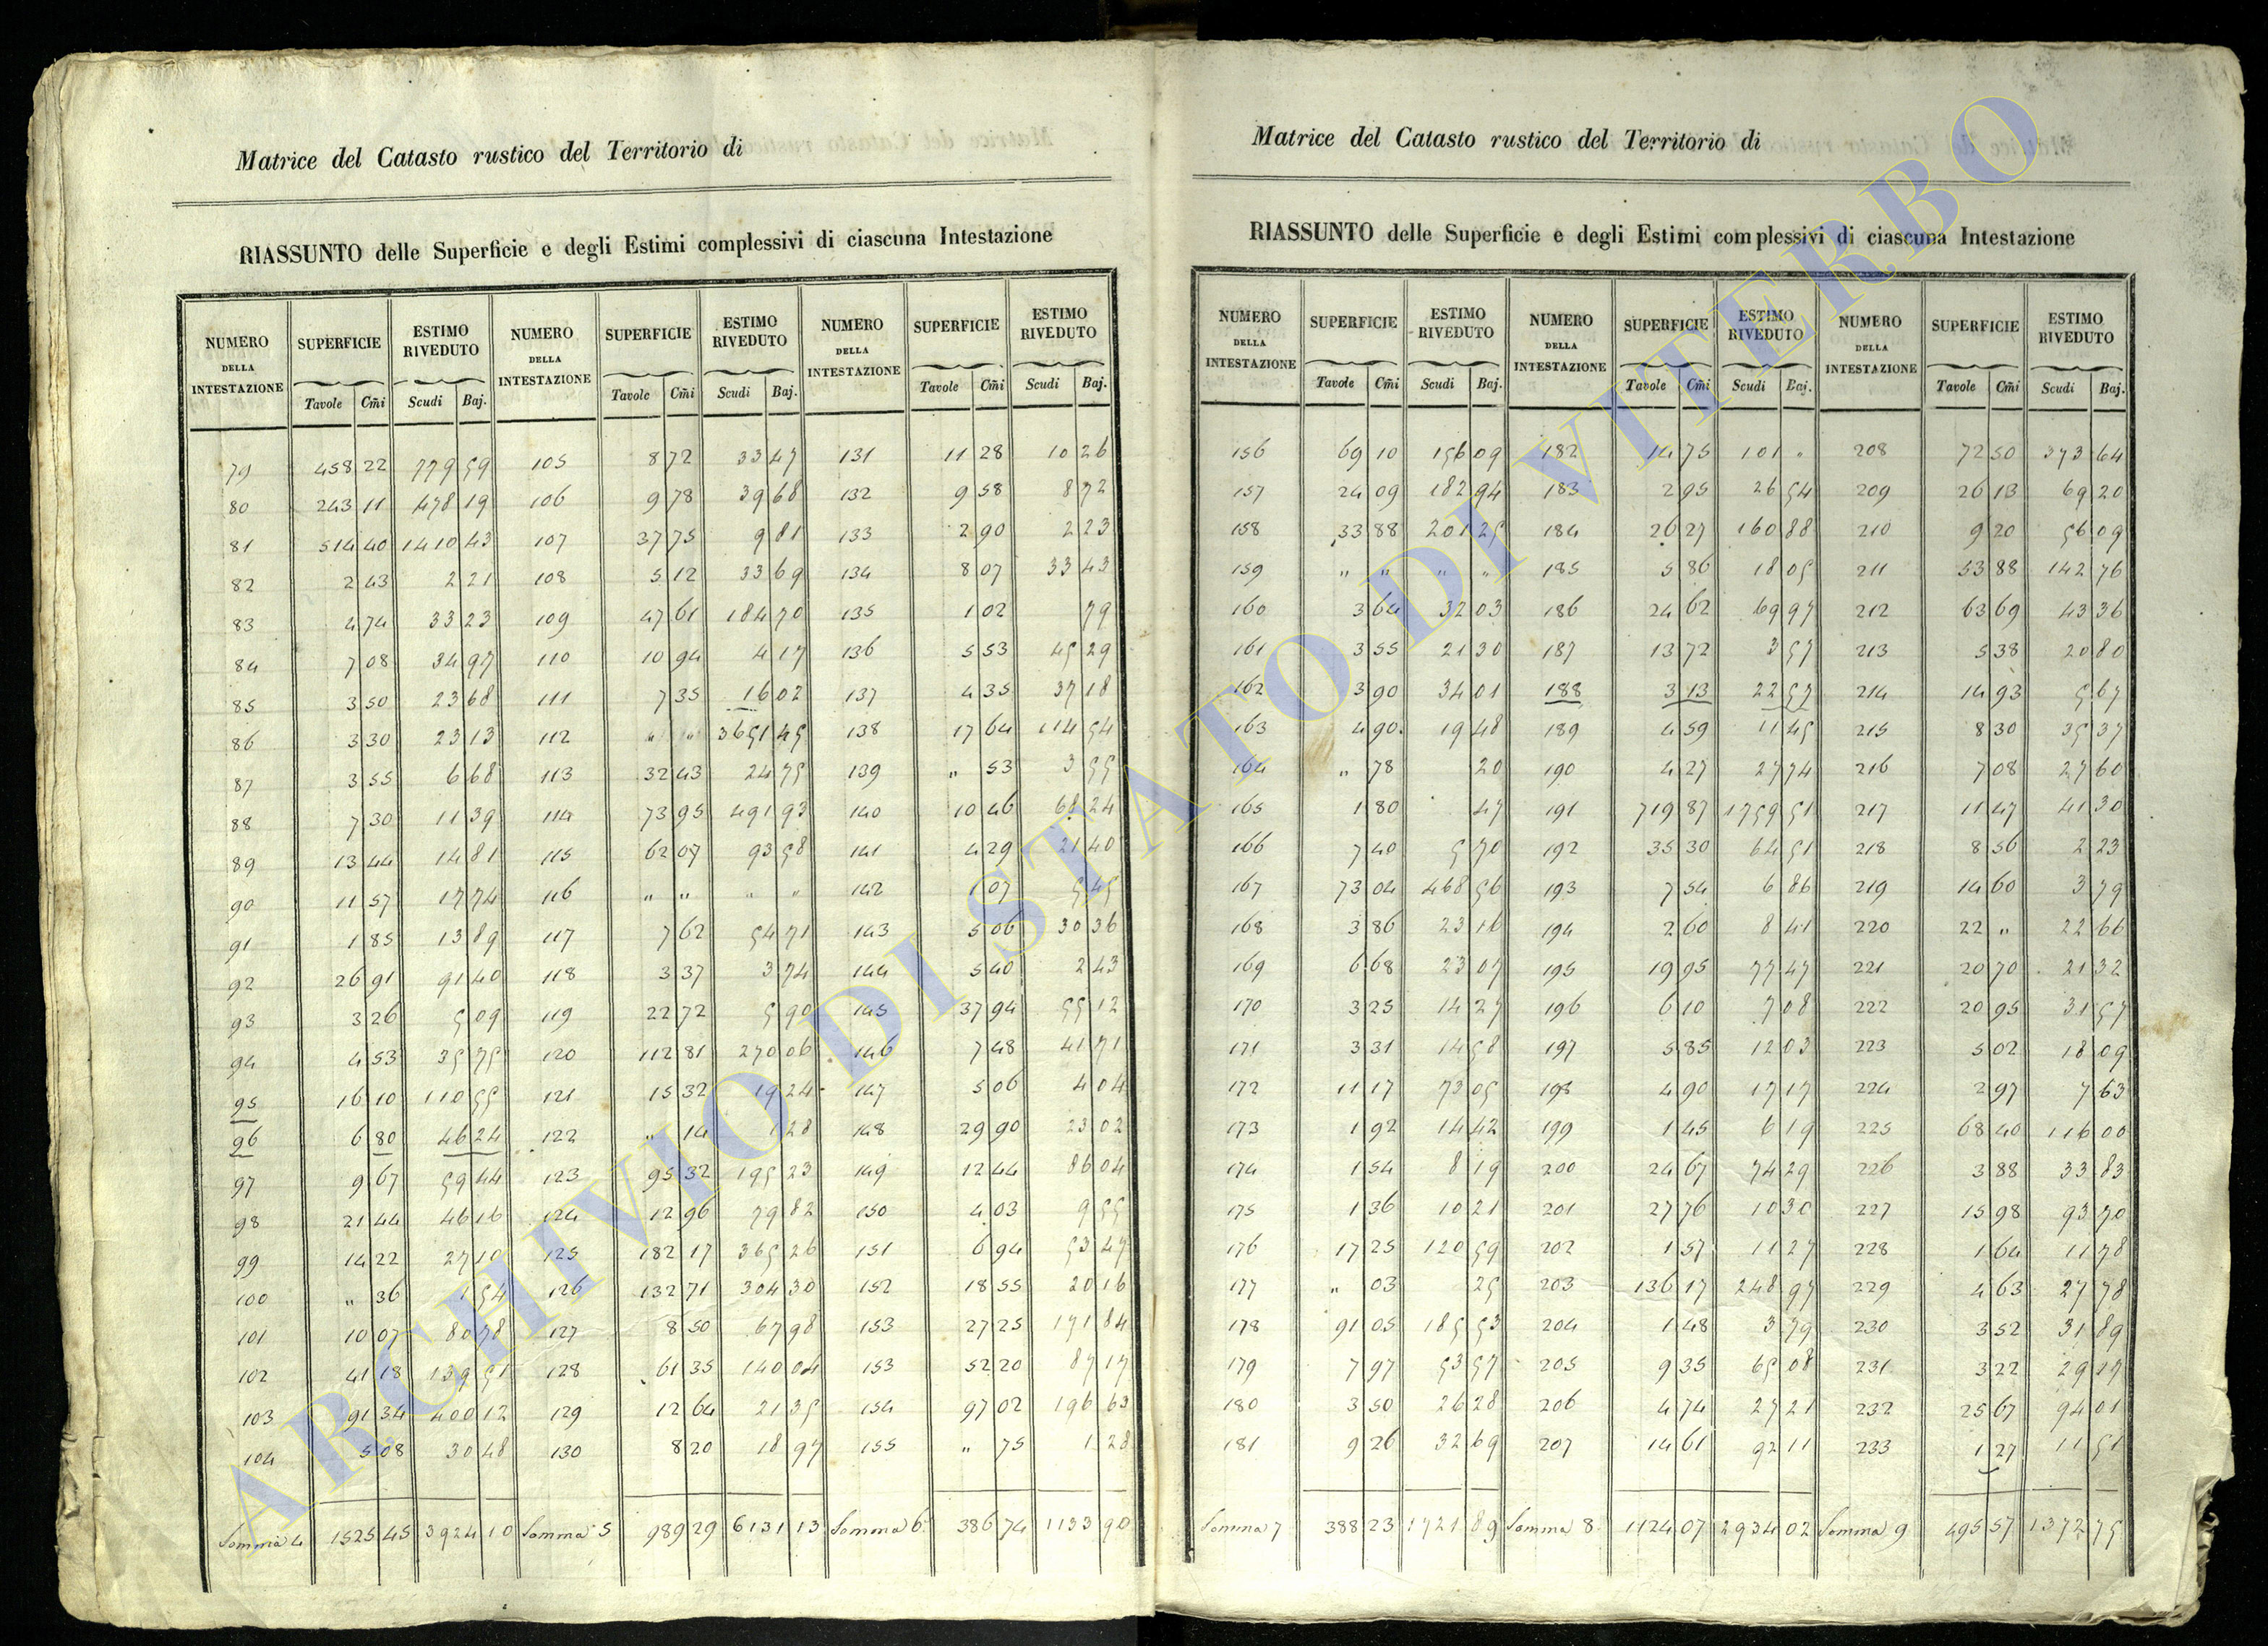 Matrice del Catasto rustico del Territorio di
RIASSUNTO delle Superficie e degli Estimi complessivi di ciascuna Intestazione
NUMERO DELLA INTESTAZIONE SUPERFICIE ESTIMO RIVEDUTO NUMERO DELLA INTESTAZIONE SUPERFICIE ESTIMO RIVEDUTO NUMERO DELLA INTESTAZIONE SUPERFICIE ESTIMO RIVEDUTO
Tavole Cm̃i Scudi Baj. Tavole Cm̃i Scudi Baj. Tavole Cm̃i Scudi Baj.
79 458 22 779 59 105 8 72 33 47 131 11 28 10 26
80 243 11 478 19 106 9 78 39 68 132 9 58 8 72
81 514 40 1410 43 107 37 75 9 81 133 2 90 2 23
82 2 43 2 21 108 5 12 33 69 134 8 07 33 43
83 4 74 33 23 109 47 61 184 70 135 1 02 79
84 7 08 34 97 110 10 94 4 17 136 5 53 45 29
85 3 50 23 68 111 7 35 16 02 137 4 35 37 18
86 3 30 23 13 112 " " 3651 45 138 17 64 114 54
87 3 55 6 68 113 32 43 24 75 139 " 53 3 55
88 7 30 11 39 114 73 95 491 93 140 10 46 68 24
89 13 44 14 81 115 62 07 93 58 141 4 29 21 40
90 11 57 17 74 116 " " " " 142 1 07 5 45
91 1 85 13 89 117 7 62 54 71 143 5 06 30 36
92 26 91 91 40 118 3 37 3 74 144 5 40 2 43
93 3 26 5 09 119 22 72 5 90 145 37 94 55 12
94 4 53 35 75 120 112 81 270 06 146 7 48 41 71
95 16 10 110 55 121 15 32 19 24 147 5 06 4 04
96 6 80 46 24 122 " 14 1 28 148 29 90 23 02
97 9 67 59 44 123 95 32 195 23 149 12 44 86 04
98 21 44 46 16 124 12 96 79 82 150 4 03 9 55
99 14 22 27 10 125 182 17 365 26 151 6 94 53 47
100 " 36 1 54 126 132 71 304 30 152 18 55 20 16
101 10 07 80 78 127 8 50 67 98 153 27 25 171 84
102 41 18 139 51 128 61 35 140 04 153 52 20 87 17
103 91 34 400 12 129 12 64 21 35 154 97 02 196 63
104 5 08 30 48 130 8 20 18 97 155 " 75 1 28
Somma 4 1525 45 3924 10 Somma 5 989 29 6131 13 Somma 6 386 74 1133 90
Matrice del Catasto rustico del Territorio di
RIASSUNTO delle Superficie e degli Estimi complessivi di ciascuna Intestazione
NUMERO DELLA INTESTAZIONE SUPERFICIE ESTIMO RIVEDUTO NUMERO DELLA INTESTAZIONE SUPERFICIE ESTIMO RIVEDUTO NUMERO DELLA INTESTAZIONE SUPERFICIE ESTIMO RIVEDUTO
Tavole Cm̃i Scudi Baj. Tavole Cm̃i Scudi Baj. Tavole Cm̃i Scudi Baj.
156 69 10 156 09 182 14 75 101 " 208 72 50 373 64
157 24 09 182 94 183 2 95 26 54 209 26 13 69 20
158 33 88 201 25 184 26 27 160 88 210 9 20 56 09
159 " " " " 185 5 86 18 05 211 53 88 142 76
160 3 64 32 03 186 24 62 69 97 212 63 69 43 36
161 3 55 21 30 187 13 72 3 57 213 5 38 20 80
162 3 90 34 01 188 3 13 22 57 214 14 93 5 67
163 4 90 19 48 189 4 59 11 45 215 8 30 35 37
164 " 78 20 190 4 27 27 74 216 7 08 27 60
165 1 80 47 191 719 87 1759 51 217 11 47 41 30
166 7 40 5 70 192 35 30 64 51 218 8 56 2 23
167 73 04 468 56 193 7 54 6 86 219 14 60 3 79
168 3 86 23 16 194 2 60 8 41 220 22 " 22 66
169 6 68 23 07 195 19 95 77 47 221 20 70 21 32
170 3 25 14 27 196 6 10 7 08 222 20 95 31 57
171 3 31 14 58 197 5 85 12 03 223 5 02 18 09
172 11 17 73 05 198 4 90 17 17 224 2 97 7 63
173 1 92 14 42 199 1 45 6 19 225 68 40 116 00
174 1 54 8 19 200 24 67 74 29 226 3 88 33 83
175 1 36 10 21 201 27 76 10 30 227 15 98 93 70
176 17 25 120 59 202 1 57 11 27 228 1 64 11 78
177 " 03 25 203 136 17 248 97 229 4 63 27 78
178 91 05 185 53 204 1 48 3 79 230 3 52 31 89
179 7 97 53 57 205 9 35 65 08 231 3 22 29 17
180 3 50 26 28 206 4 74 27 21 232 25 67 94 01
181 9 26 32 69 207 14 61 92 11 233 1 27 11 51
Somma 7 388 23 1721 89 Somma 8 1124 07 2934 02 Somma 9 495 57 1372 75
ARCHIVIO DI STATO DI VITERBO